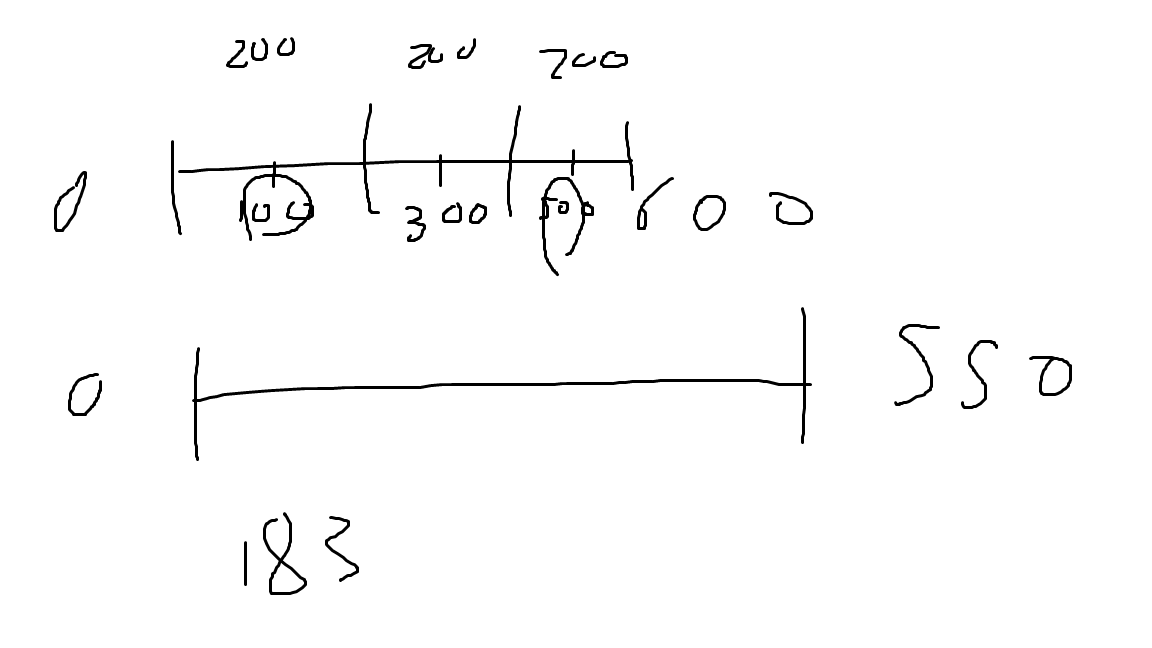 200 200 200
0 100 300 500 600
0 550
183